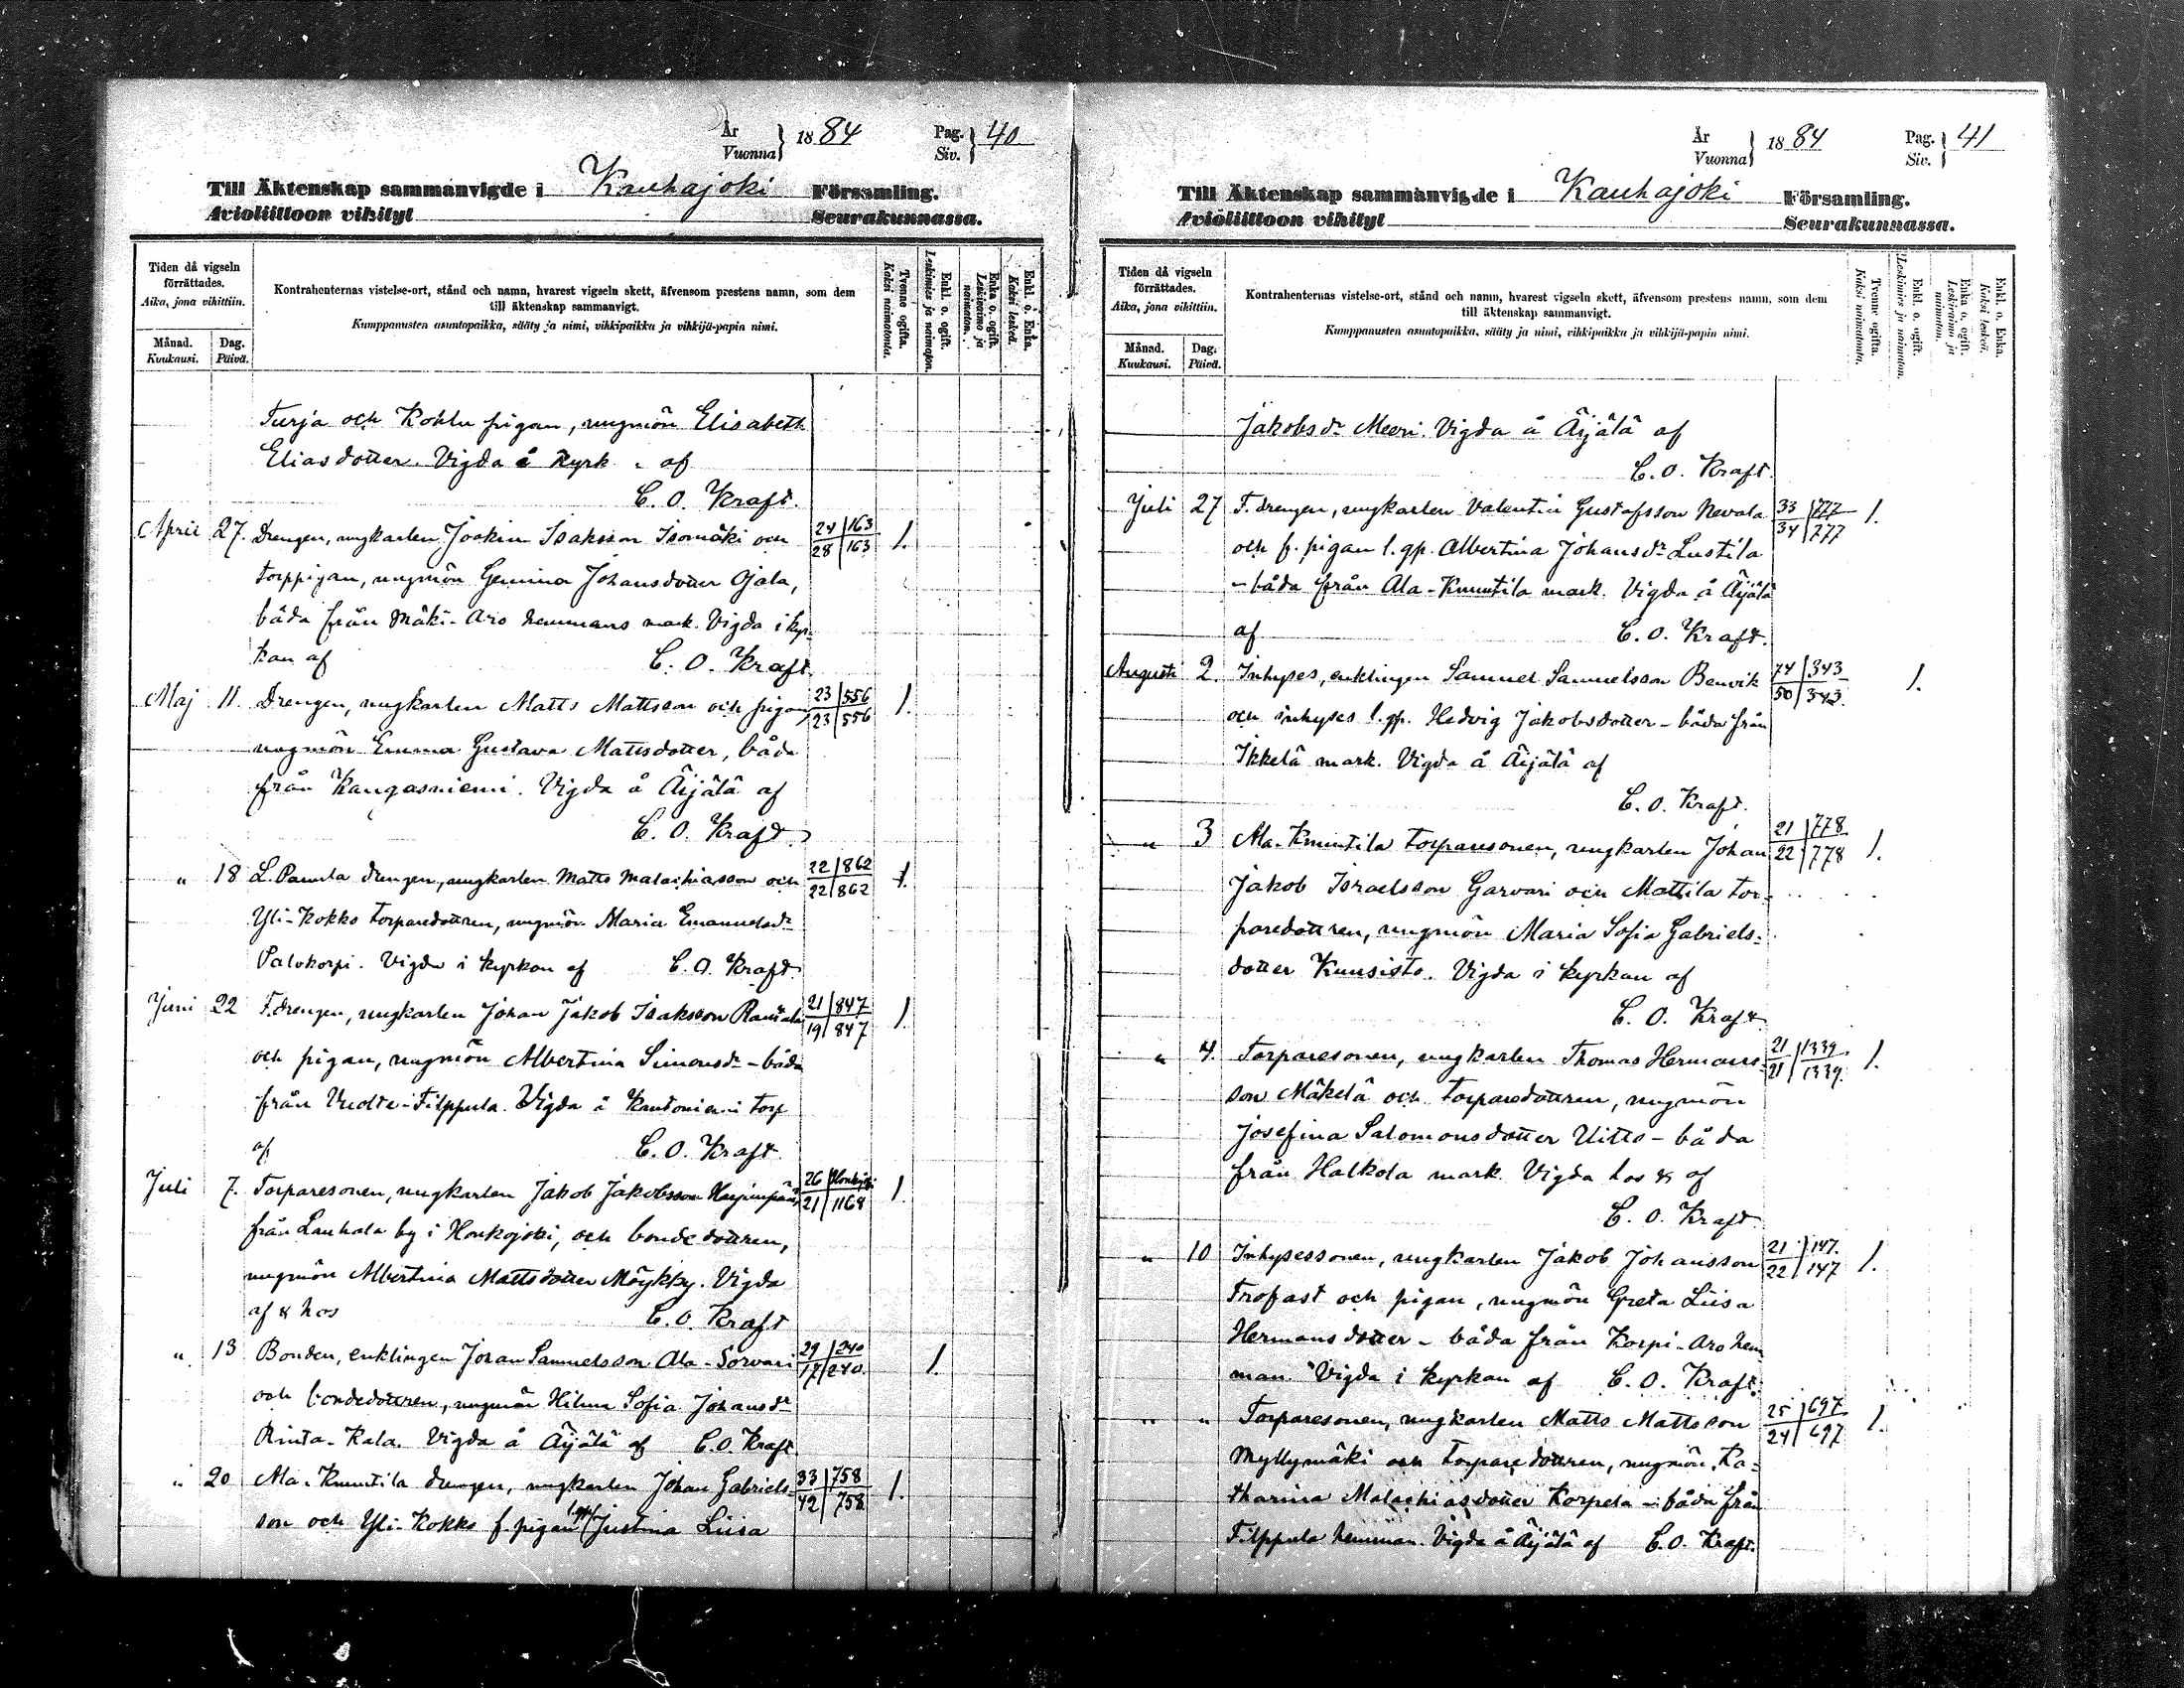 År
Vuonna } 1884 Pag.
Siv. } 40
Till Äktenskap sammanvigde i Kauhajoki Församling.
Avioliittoon vihityt Seurakunnassa.
Tiden då vigseln förrättades.
Aika, jona vihittiin.
Månad.
Kuukausi.
Dag.
Päivä.
Kontrahenternas vistelse-ort, stånd och namn, hvarest vigseln skett, äfvensom prestens namn, som dem
till äktenskap sammanvigt.
Kumppanusten asuntopaikka, sääty ja nimi, vihkipaikka ja vihkijä-papin nimi.
Tvenne ogifta.
Kaksi naimatonta.
Enkl. o. ogift.
Leskimies ja naimaton.
Enka o. ogift.
Leskivaimo ja naimaton.
Enkl. o. Enka.
Kaksi leskeä.
Turja och Kohlu pigan, ungmön Elisabeth
Eliasdotter. Vigda å Kyrk. af
C. O. Kraft.
April 27. Drengen, ungkarlen Joakim Isaksson Isomäki och 24 | 163 1.
28 | 163
torppigan, ungmön Gemina Johansdotter Ojala,
båda från Mäki-Aro hemmans mark. Vigda i kyr-
kan af C. O. Kraft.
Maj 11. Drengen, ungkarlen Matts Mattsson och pigan, 23 | 556 1.
23 | 556
ungmön Emma Gustava Mattsdotter, båda
från Kangasniemi. Vigda å Äijälä af
C. O. Kraft.
" 18 L. Panula drengen, ungkarlen Matts Malachiasson och 22 | 862 1.
22 | 862
Yli-Kokko torparedottren, ungmön Maria Emanuelsdr
Palokorpi. Vigda i kyrkan af C. O. Kraft.
Juni 22 F. drengen, ungkarlen Johan Jakob Isaksson Rantala 21 | 847 1.
19 | 847
och pigan, ungmön Albertina Simonsdr - båda
från Filppula. Vigda å torp
af C. O. Kraft.
Juli 7. Torparesonen, ungkarlen Jakob Jakobsson Harjunpää, 26 | Honkajoki 1.
21 | 1168
från Lauhala by i Honkajoki, och bondedottren,
ungmön Albertina Mattsdotter Möykky. Vigda
af & hos C. O. Kraft
" 13 Bonden, enklingen Johan Samuelsson Ala-Sorvari 29 | 240 1.
17 | 240.
och bondedottren, ungmön Hilma Sofia Johansdr
Rinta-Kala. Vigda å Äijälä af C. O. Kraft.
" 20 Ala-Knuutila drengen, ungkarlen Johan Gabriels- 33 | 758 1.
42 | 758
son och Yli-Kokko f. pigan l.gp. Justina Liisa
År
Vuonna } 1884 Pag.
Siv. } 41
Till Äktenskap sammanvigde i Kauhajoki Församling.
Avioliittoon vihityt Seurakunnassa.
Tiden då vigseln förrättades.
Aika, jona vihittiin.
Månad.
Kuukausi.
Dag.
Päivä.
Kontrahenternas vistelse-ort, stånd och namn, hvarest vigseln skett, äfvensom prestens namn, som dem
till äktenskap sammanvigt.
Kumppanusten asuntopaikka, sääty ja nimi, vihkipaikka ja vihkijä-papin nimi.
Tvenne ogifta.
Kaksi naimatonta.
Enkl. o. ogift.
Leskimies ja naimaton.
Enka o. ogift.
Leskivaimo ja naimaton.
Enkl. o. Enka.
Kaksi leskeä.
Jakobsdr Meeri. Vigda å Äijälä af
C. O. Kraft.
Juli 27 F. drengen, ungkarlen Valentin Gustafsson Nevala 33 | 777 1.
34 | 777
och f. pigan l.gp. Albertina Johansdr Lustila
- båda från Ala-Knuutila mark. Vigda å Äijälä
af C. O. Kraft.
Augusti 2. Inhyses, enklingen Samuel Samuelsson Benvik 74 | 343 1.
50 | 343.
och inhyses l.gp. Hedvig Jakobsdotter - båda från
Ikkelä mark. Vigda å Äijälä af
C. O. Kraft.
" 3 Ala-Knuutila torparesonen, ungkarlen Johan 21 | 778 1.
22 | 778
Jakob Israelsson Garvari och Mattila tor-
paredottren, ungmön Maria Sofia Gabriels-
dotter Kuusisto. Vigda i kyrkan af
C. O. Kraft.
" 4. Torparesonen, ungkarlen Thomas Hermans- 21 | 1339 1.
21 | 1339.
son Mäkelä och torparedottren, ungmön
Josefina Salomonsdotter Uitto - båda
från Halkola mark. Vigda hos & af
C. O. Kraft.
" 10 Inhysessonen, ungkarlen Jakob Johansson 21 | 147. 1.
22 | 147
Trofast och pigan, ungmön Greta Liisa
Hermansdotter - båda från Korpi-Aro hem
man. Vigda i kyrkan af C. O. Kraft.
" " Torparesonen, ungkarlen Matts Mattsson 25 | 697 1.
24 | 697
Myllymäki och torparedottren, ungmön Ka-
tharina Malachiasdotter Korpela - båda från
Filppula hemman. Vigda å Äijälä af C. O. Kraft.